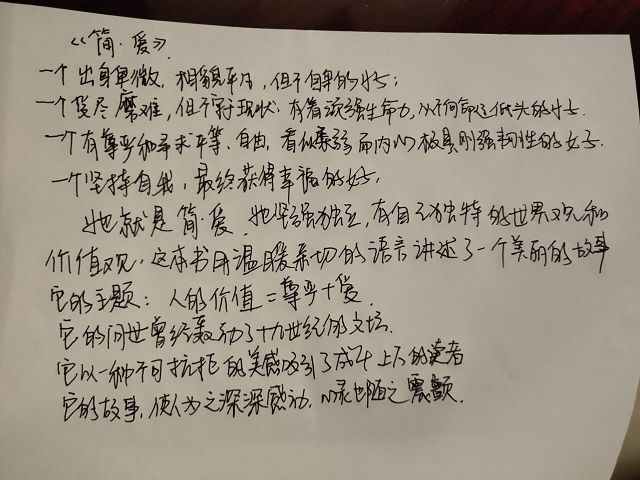 《简·爱》
一个出身卑微，相貌平凡，但不自卑的女子；
一个受尽磨难，但不安于现状，有着顽强生命力，从不向命运低头的女子.
一个有尊严和寻求平等、自由，看似柔弱而内心极具刚强韧性的女子.
一个坚持自我，最终获得幸福的女子，
她就是简·爱，她坚强独立，有自己独特的世界观和
价值观，这本书用温暖亲切的语言讲述了一个美丽的故事
它的主题：人的价值=尊严+爱.
它的问世曾经轰动了十九世纪的文坛.
它以一种不可抗拒的美感吸引了成千上万的读者
它的故事，使人为之深深感动，心灵也随之震颤.